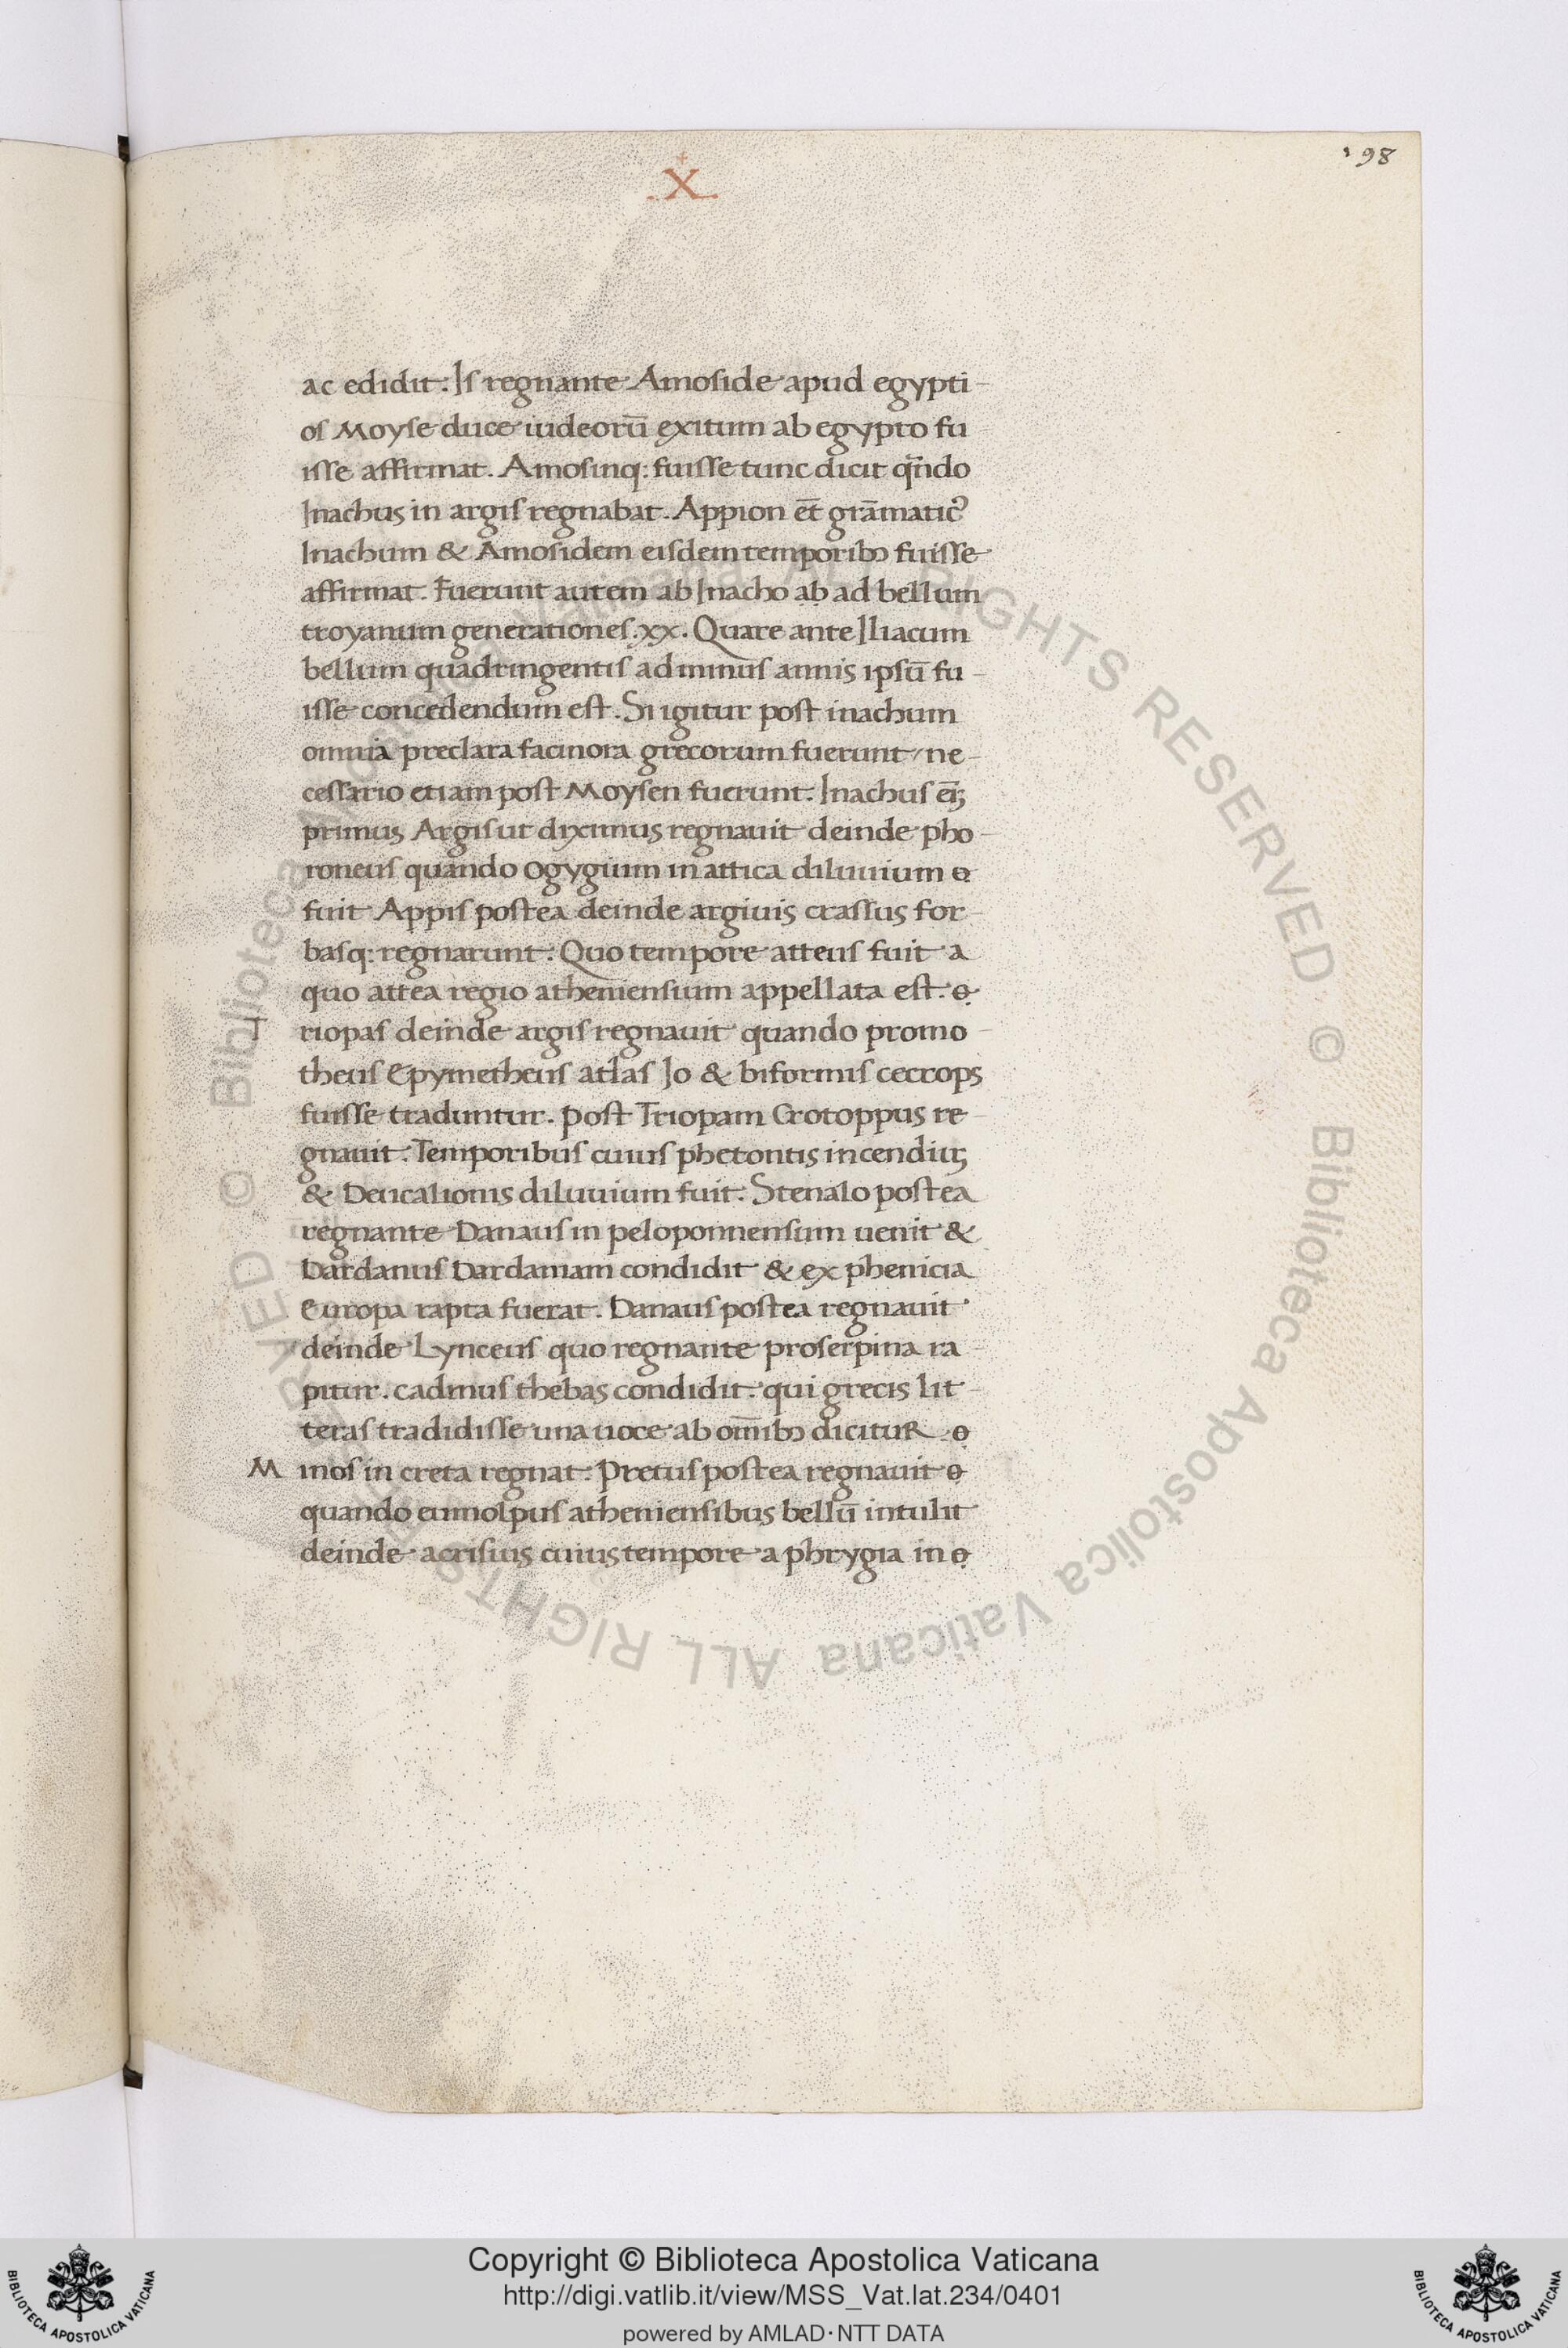 198
.X.
ac edidit. Is regnante Amoside apud egypti-
os Moyse duce iudeorū exitum ab egypto fu-
isse affirmat. Amosinq: fuisse tunc dicit qn̄do
Inachus in argis regnabat. Appion et̄ grāmaticꝰ
Inachum & Amosidem eisdem temporibꝫ fuisse
affirmat. Fuerunt autem ab Inacho ab ad bellum
troyanum generationes .xx. Quare ante Iliacum
bellum quadringentis ad minus annis ipsū fu-
isse concedendum est. Si igitur post inachum
omnia preclara facinora grecorum fuerunt / ne-
cessario etiam post Moysen fuerunt. Inachus eīꝫ
primus Argis ut diximus regnauit deinde pho-
roneus quando ogygium in attica diluuium e
fuit Appis postea deinde argiuis crassus for-
basq: regnarunt. Quo tempore atteus fuit a
quo attea regio atheniensium appellata est. e
T riopas deinde argis regnauit quando promo-
theus Epymetheus atlas Io & biformis cecrops
fuisse traduntur. Post Triopam Crotoppus re-
gnauit. Temporibus cuius phetontis incendiuꝫ
& Deucalionis diluuium fuit. Stenalo postea
regnante Danaus in peloponnensum uenit &
Dardanus Dardaniam condidit & ex phenicia
Europa rapta fuerat. Danaus postea regnauit
deinde Lynceus quo regnante proserpina ra-
pitur. cadmus thebas condidit. qui grecis lit-
teras tradidisse una uoce ab om̄ibꝫ dicitur. e
M inos in creta regnat. Pretus postea regnauit e
quando eumolpus atheniensibus bellū intulit
deinde acrisius cuius tempore a phrygia in e
Copyright © Biblioteca Apostolica Vaticana
http://digi.vatlib.it/view/MSS_Vat.lat.234/0401
powered by AMLAD·NTT DATA
BIBLIOTECA APOSTOLICA VATICANA
BIBLIOTECA APOSTOLICA VATICANA
© Biblioteca Apostolica Vaticana ALL RIGHTS RESERVED © Biblioteca Apostolica Vaticana ALL RIGHTS RESERVED